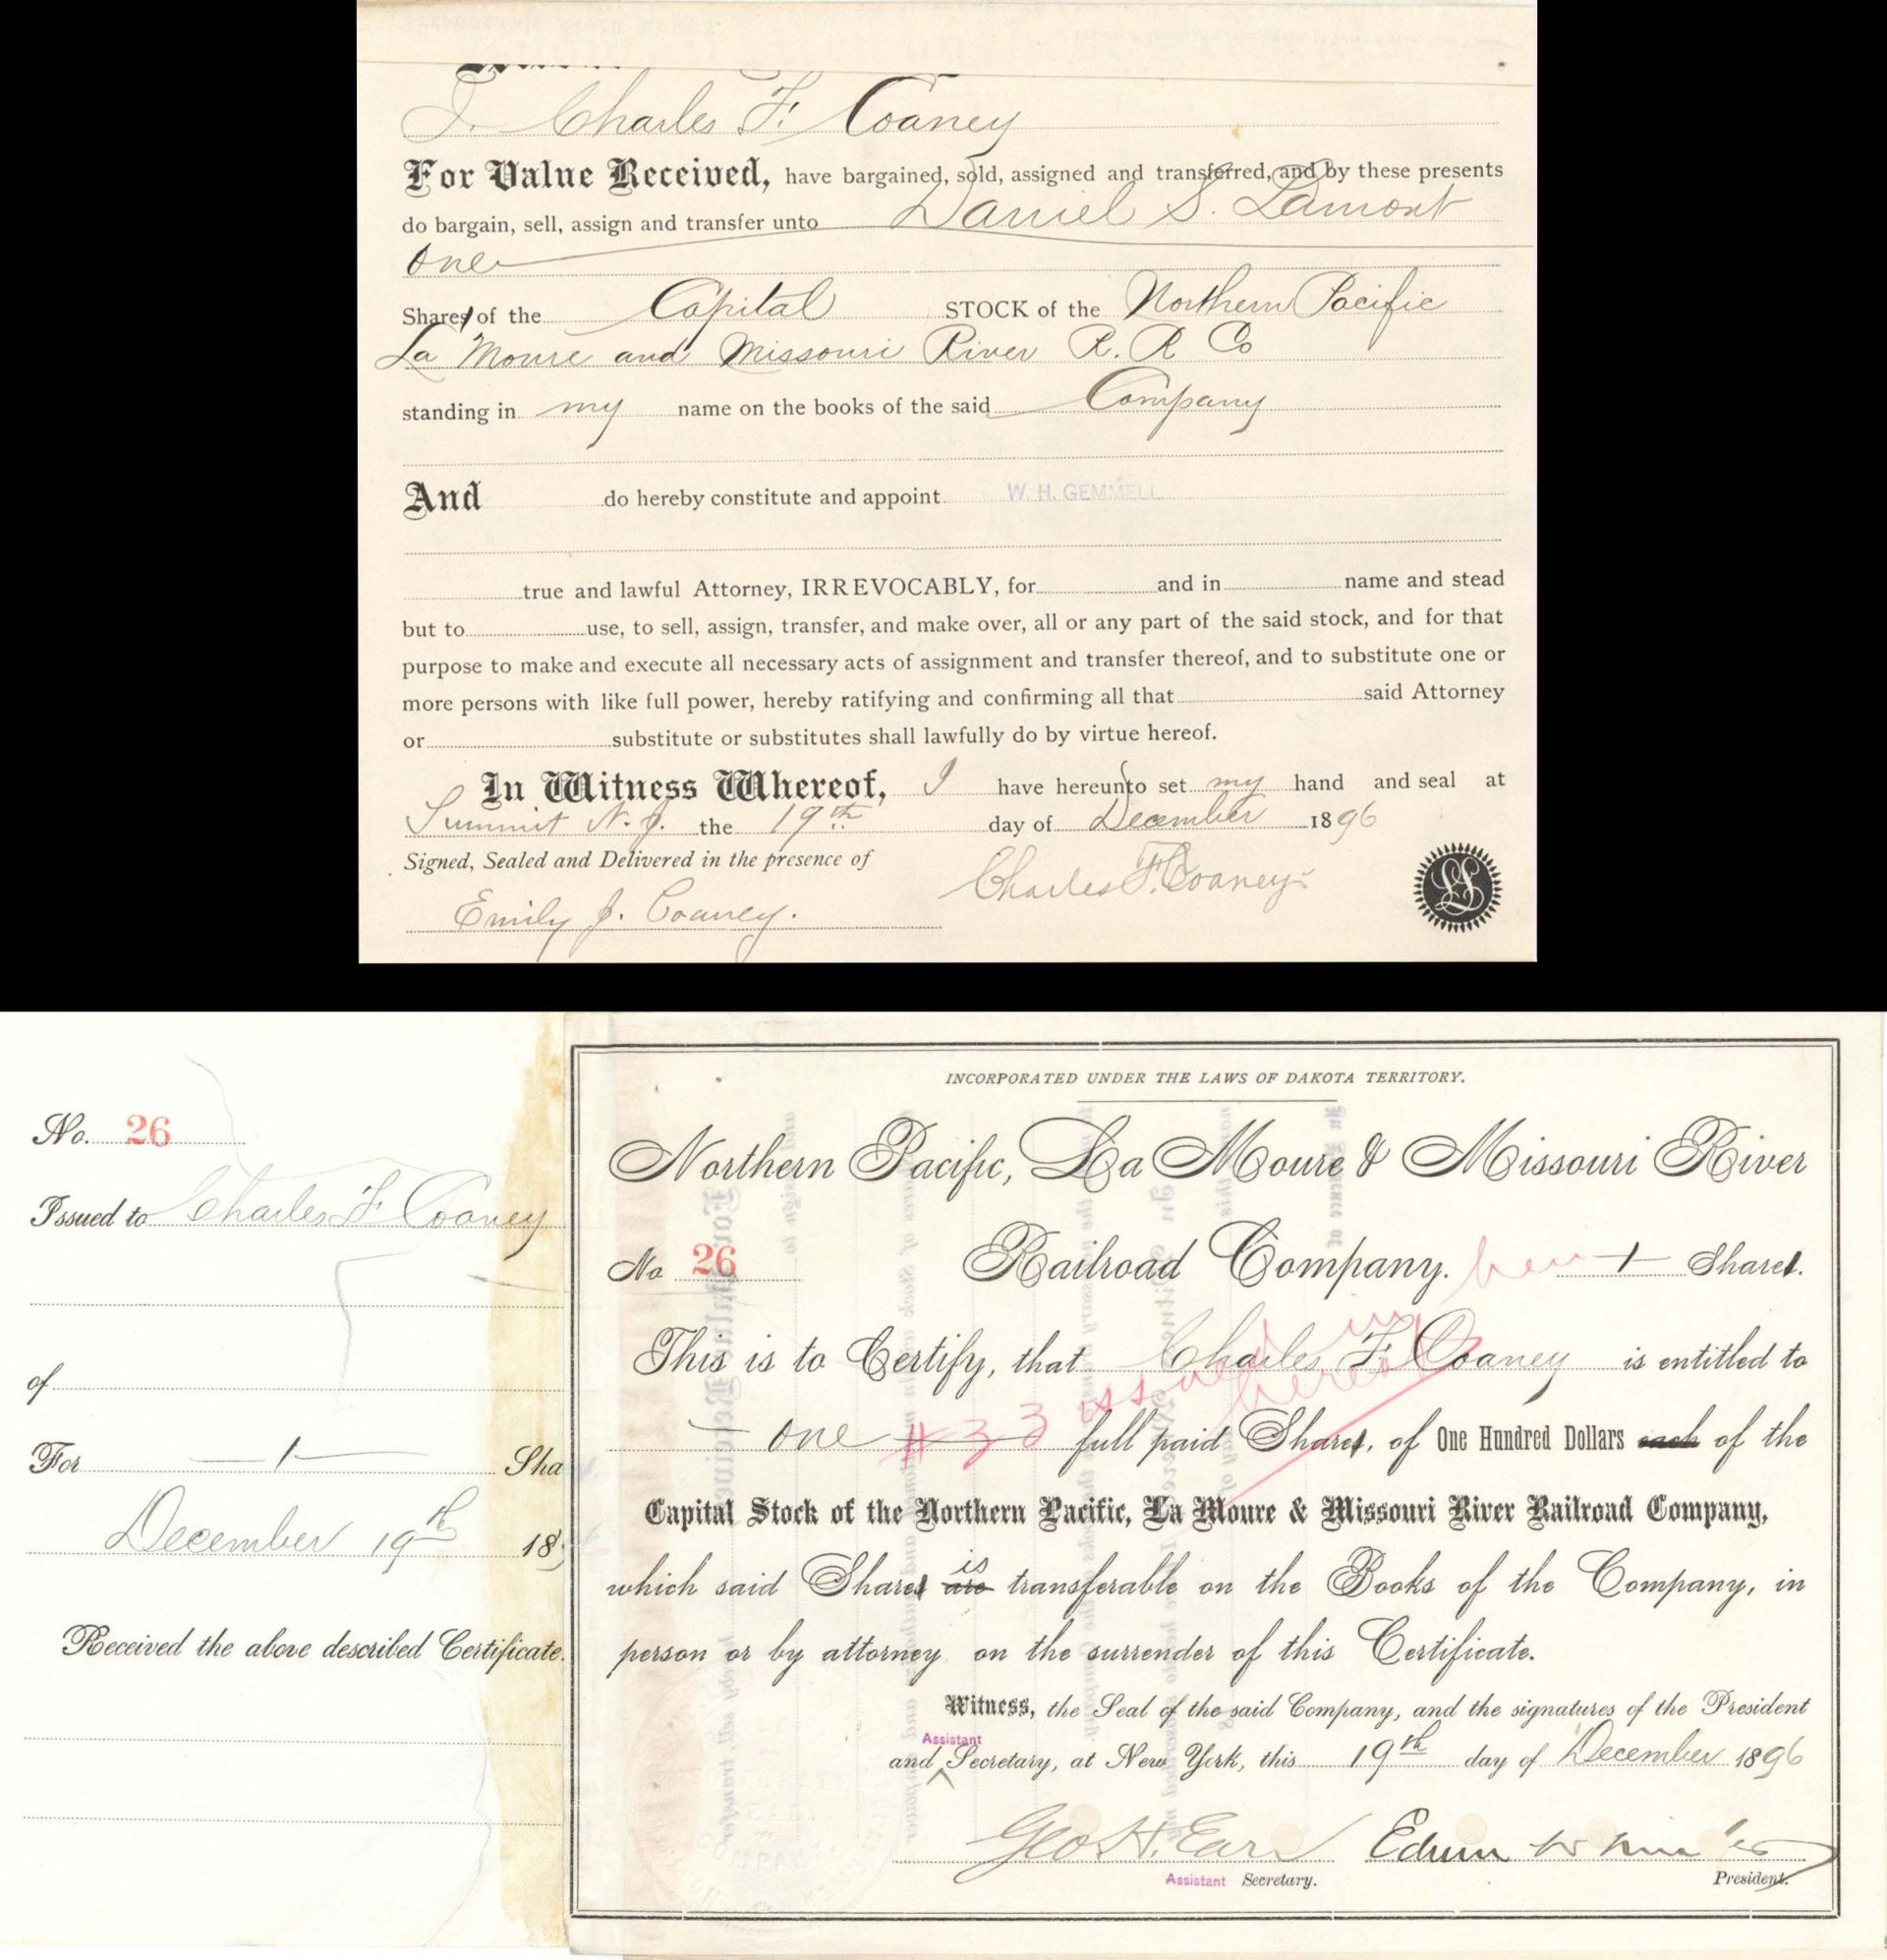 I. Charles F. Coaney
For Value Received, have bargained, sold, assigned and transferred, and by these presents
do bargain, sell, assign and transfer unto Daniel S. Lamont
One
Shares of the Capital STOCK of the Northern Pacific
La Moure and Missouri River R. R Co
standing in my name on the books of the said Company
And do hereby constitute and appoint W. H. GEMMELL
true and lawful Attorney, IRREVOCABLY, for and in name and stead
but to use, to sell, assign, transfer, and make over, all or any part of the said stock, and for that
purpose to make and execute all necessary acts of assignment and transfer thereof, and to substitute one or
more persons with like full power, hereby ratifying and confirming all that said Attorney
or substitute or substitutes shall lawfully do by virtue hereof.
In Witness Whereof, I have hereunto set my hand and seal at
Summit N. J. the 19th day of December 1896
Signed, Sealed and Delivered in the presence of
Charles F. Coaney
Emily J. Coaney.
LS
No. 26
Issued to Charles F Coaney
of
For 1 Sha
December 19th 18
Received the above described Certificate.
INCORPORATED UNDER THE LAWS OF DAKOTA TERRITORY.
Northern Pacific, La Moure & Missouri River
No 26 Railroad Company. 1 Shares.
This is to Certify, that Charles F. Coaney is entitled to
one full paid Shares, of One Hundred Dollars each of the
#33 issued in
hereof
Capital Stock of the Northern Pacific, La Moure & Missouri River Railroad Company,
which said Shares are is transferable on the Books of the Company, in
person or by attorney on the surrender of this Certificate.
Witness, the Seal of the said Company, and the signatures of the President
Assistant
and Secretary, at New York, this 19th day of December 1896
Geo H. Earl Edwin W Winter
Assistant Secretary. President.